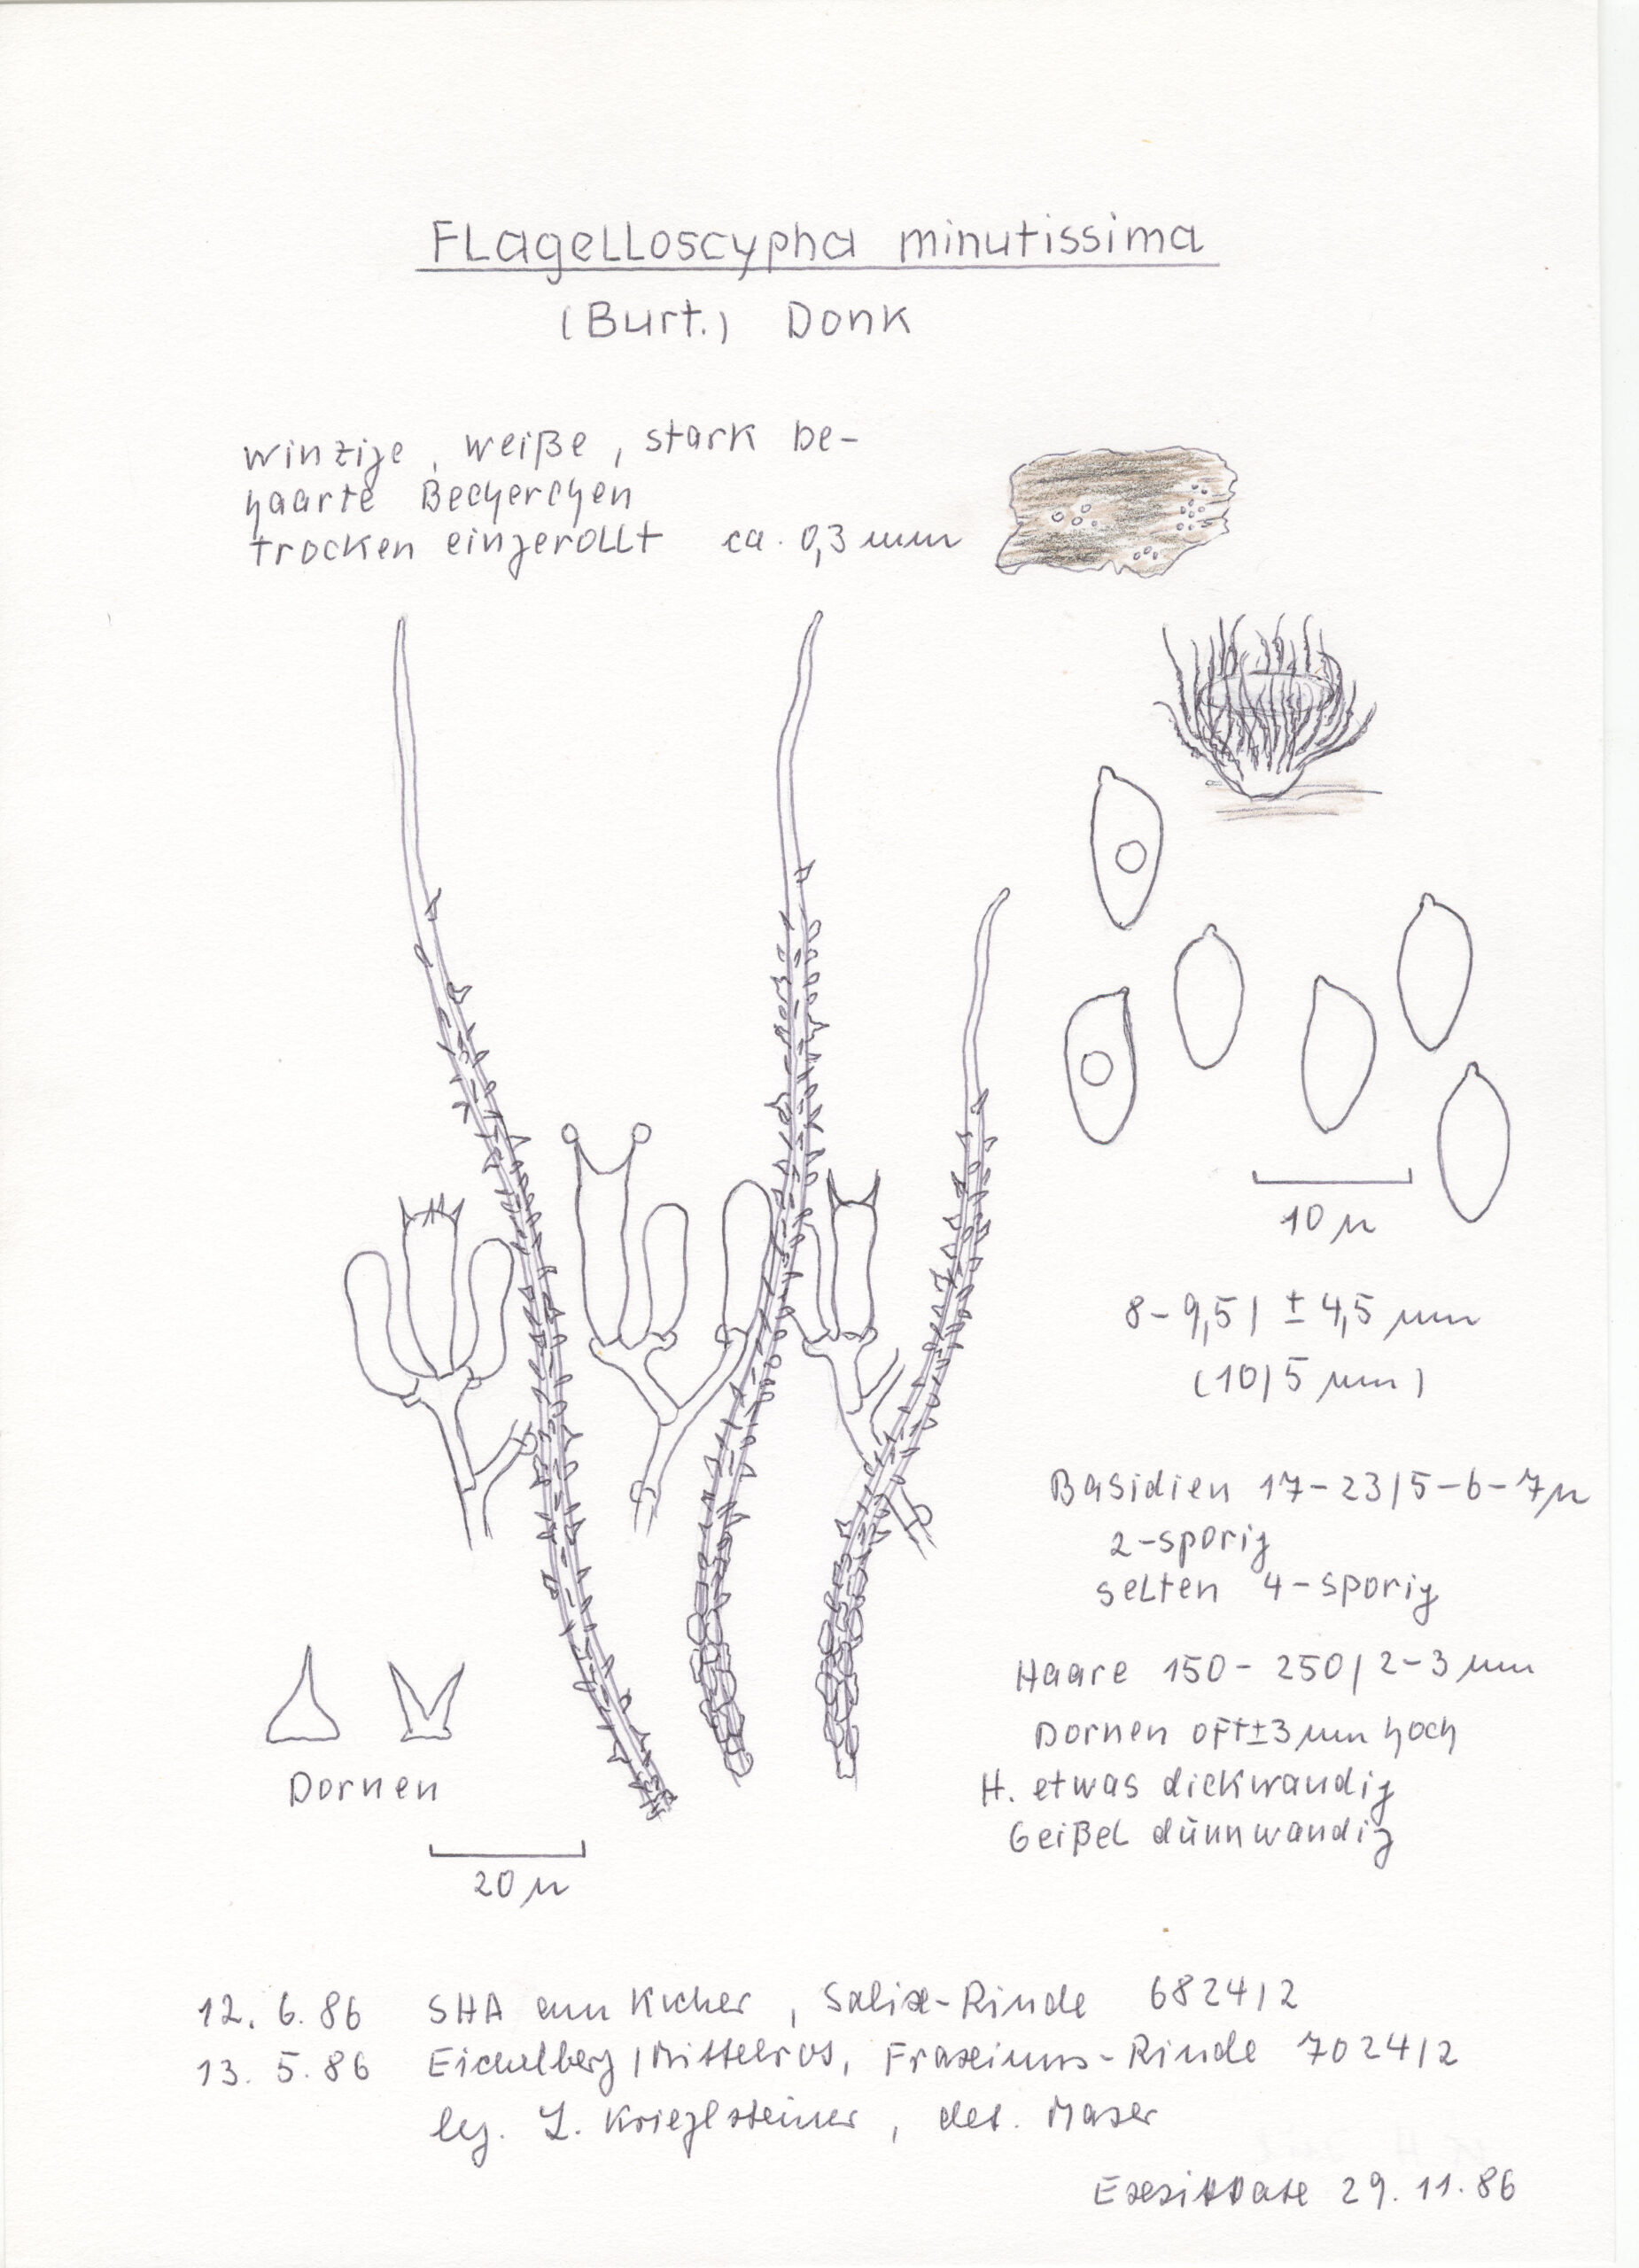 Flagelloscypha minutissima
(Burt.) Donk
winzige, weiße, stark be-
haarte Becherchen
trocken eingerollt ca. 0,3 mm
10 µ
8-9,5/ ± 4,5 µm
(10/5 µm)
Basidien 17-23/5-6-7µ
2-sporig
selten 4-sporig
Haare 150-250/2-3 µm
Dornen oft ±3 µm hoch
H. etwas dickwandig
Geißel dünnwandig
Dornen
20 µ
12. 6. 86 SHA am Kocher, Salix-Rinde 6824/2
13. 5. 86 Eichelberg/Mittelrot, Fraxinus-Rinde 7024/2
leg. L. Krieglsteiner, det. Maser
29. 11. 86